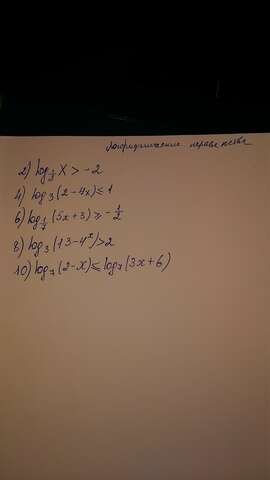 Логарифмические неравенства
2) log_{1/3} x > -2
4) log_3 (2-4x) ≤ 1
6) log_{1/7} (5x+3) ≥ -1/2
8) log_3 (13-4^x) > 2
10) log_7 (2-x) ≤ log_7 (3x+6)